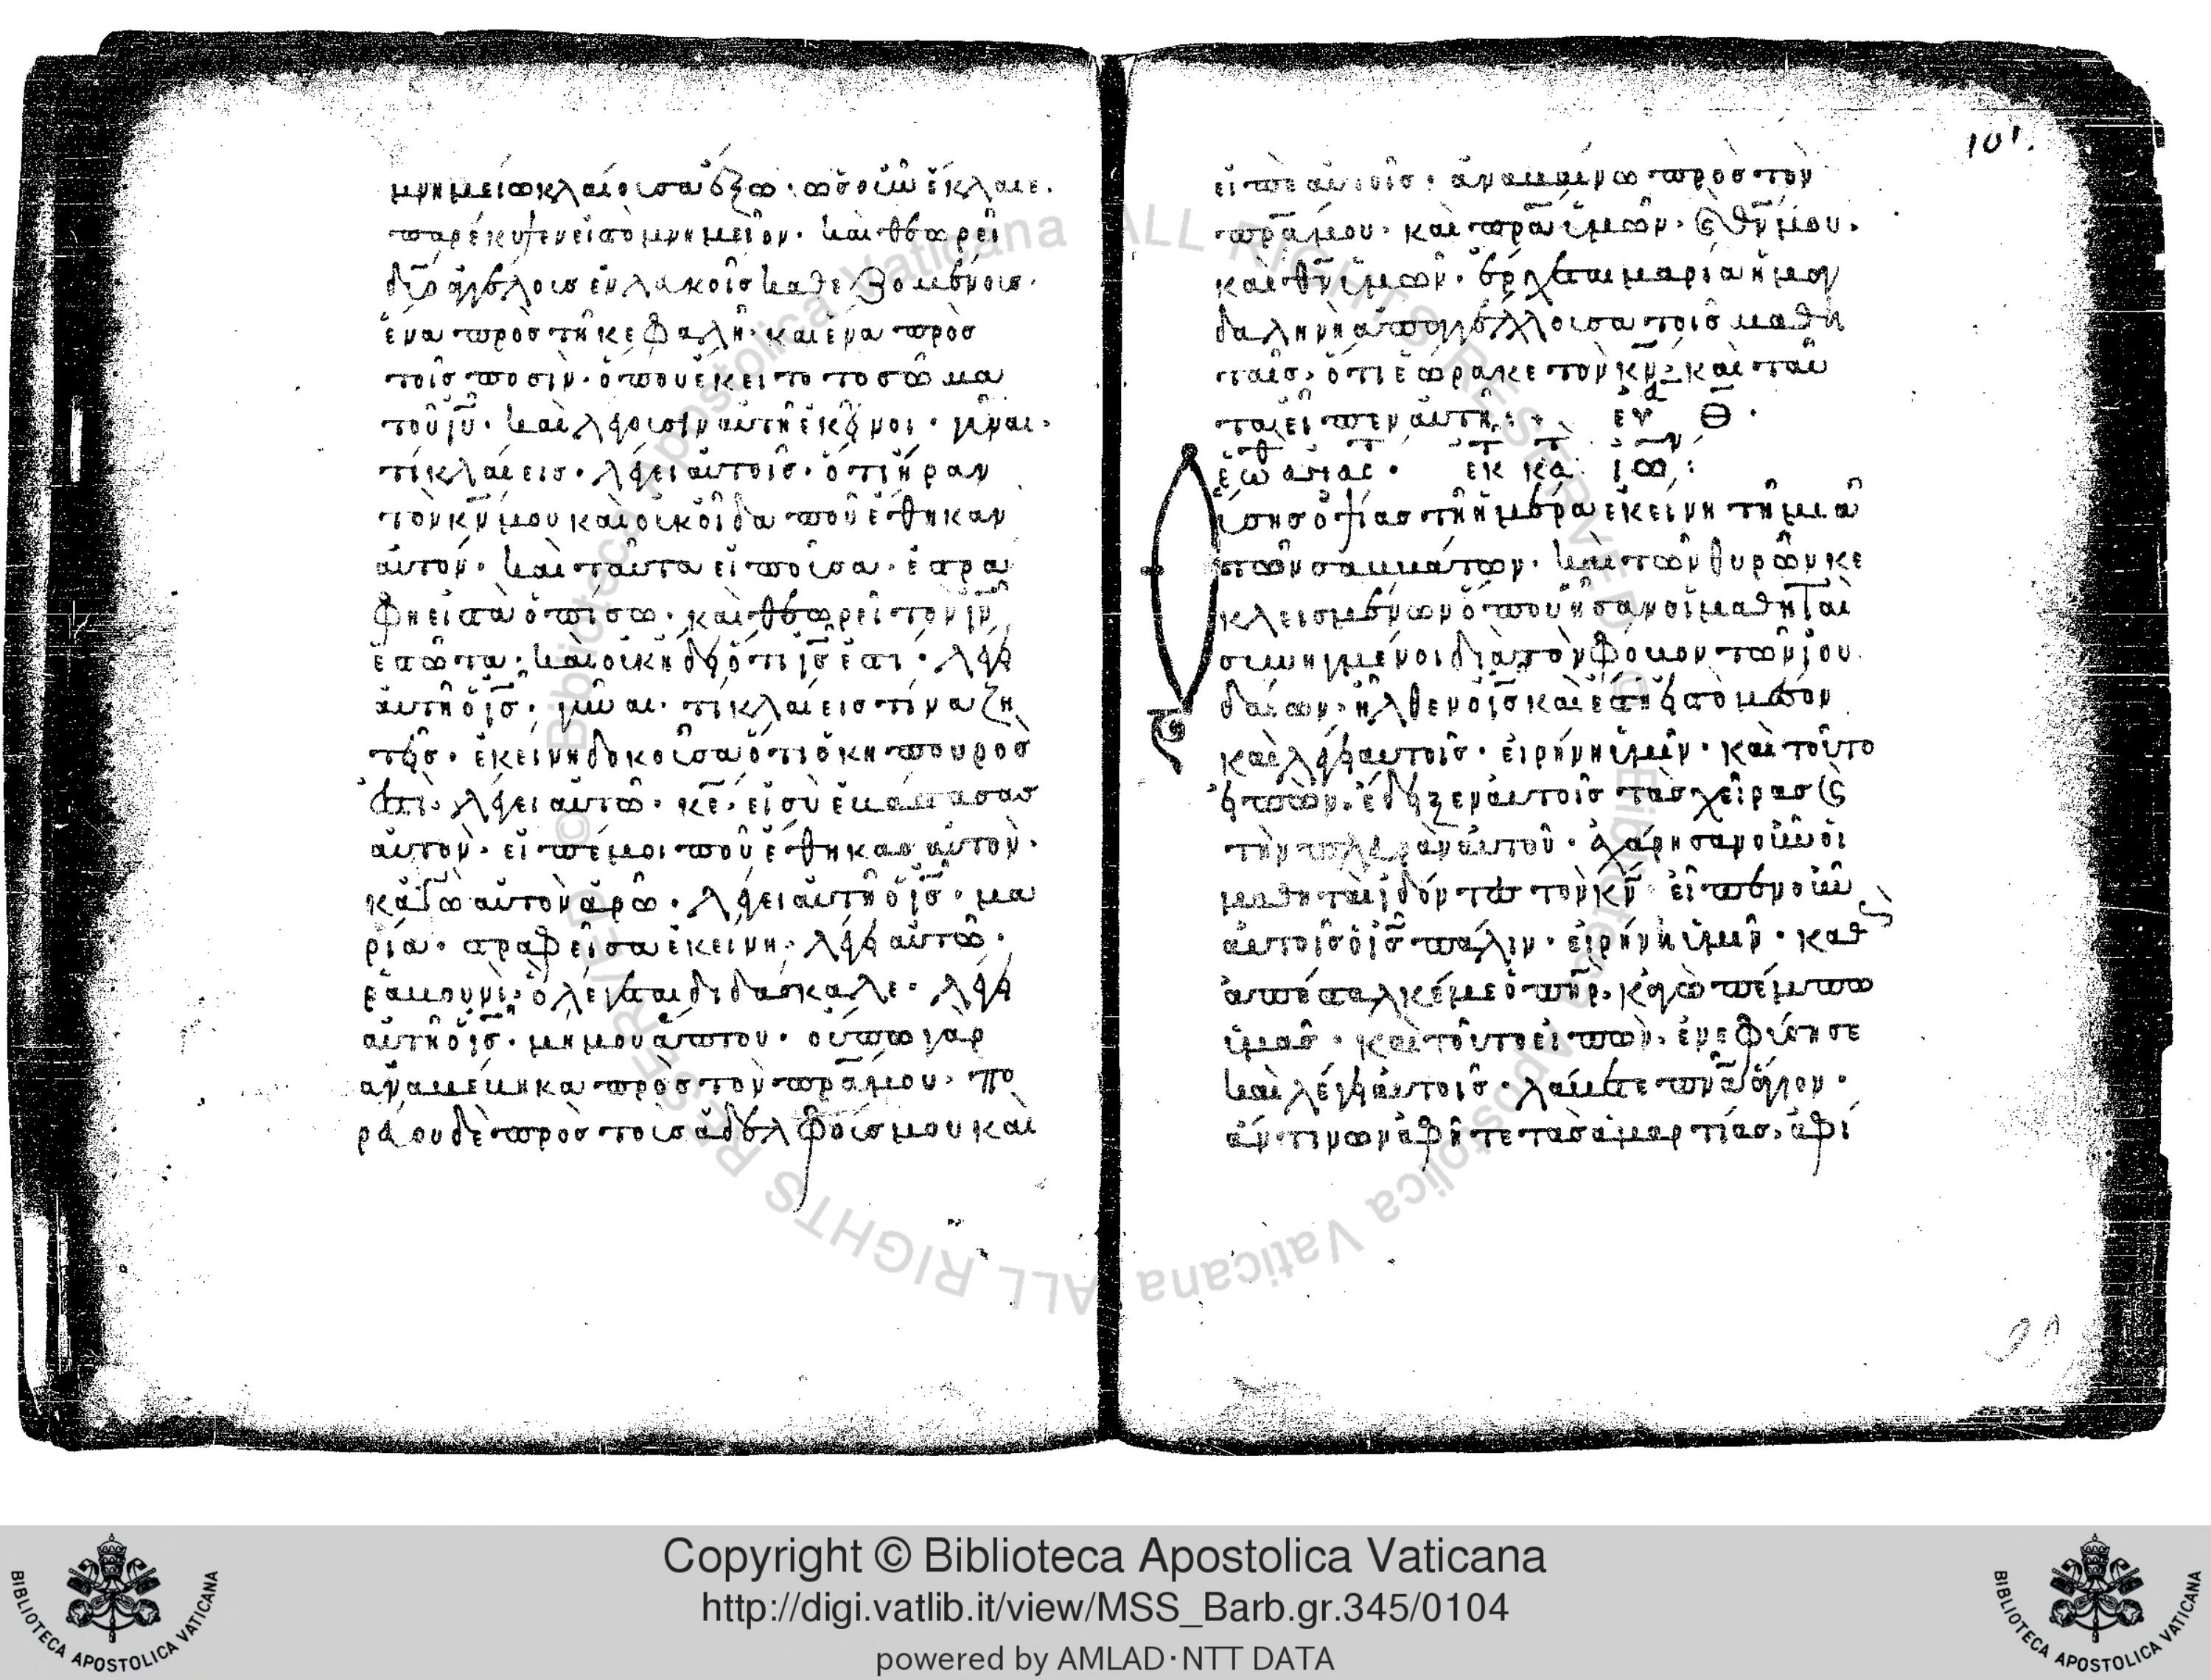 μνημείω κλαίουσα ἔξω· ὡς οὖν ἔκλαιε·
παρέκυψεν εἰς τὸ μνημεῖον· καὶ θεωρεῖ
δύο ἀγγέλους ἐν λευκοῖς καθεζομένους·
ἕνα πρὸς τῆ κεφαλῆ· καὶ ἕνα πρὸς
τοῖς ποσὶν· ὅπου ἔκειτο τὸ σῶμα
τοῦ ιυ· καὶ λέγουσιν αὐτῆ ἐκεῖνοι· γύναι·
τί κλαίεις· λέγει αὐτοῖς· ὅτι ἦραν
τὸν κν μου καὶ οὐκ οἶδα ποῦ ἔθηκαν
αὐτόν· καὶ ταῦτα εἰποῦσα· ἐστρά
φη εἰς τὰ ὀπίσω· καὶ θεωρεῖ τὸν ιν
ἑστῶτα· καὶ οὐκ ἤδει ὅτι ις ἐστι· λέγει
αὐτῆ ὁ ις· γύναι· τί κλαίεις τίνα ζη
τεῖς· ἐκείνη δοκοῦσα ὅτι ὁ κηπουρός
ἐστι· λέγει αὐτῶ· κε· εἰ σὺ ἐβάστασας
αὐτὸν· εἰπέ μοι ποῦ ἔθηκας αὐτὸν·
κἀγὼ αὐτὸν ἀρῶ· λέγει αὐτῆ ὁ ις· μα
ρία· στραφεῖσα ἐκείνη· λέγει αὐτῶ·
ῥαβουνὶ· ὃ λέγεται διδάσκαλε· λέγει
αὐτῆ ὁ ις· μή μου ἅπτου· οὔπω γὰρ
ἀναβέβηκα πρὸς τὸν πρα μου· πο
ρεύου δὲ πρὸς τοὺς ἀδελφούς μου καὶ
101.
εἰπὲ αὐτοῖς· ἀναβαίνω πρὸς τὸν
πρα μου· καὶ πρα ὑμῶν· ϗ θν μου·
καὶ θν ὑμῶν· ἔρχεται μαρία ἡ μαγ
δαληνὴ ἀπαγγέλλουσα τοῖς μαθη
ταῖς· ὅτι ἑώρακε τὸν κν· καὶ ταῦ
τα εἶπεν αὐτῆ· ευ Θ·
ἑωθ αναστ· ἐκ τ κατ ιω·
Οὔσης ὀψίας τῆ ἡμέρα ἐκείνη τῆ μιᾶ
τῶν σαββάτων· καὶ τῶν θυρῶν κε
κλεισμένων ὅπου ἦσαν οἱ μαθηταὶ
συνηγμένοι διὰ τὸν φόβον τῶν ἰου
δαίων· ἦλθεν ὁ ις καὶ ἔστη εἰς τὸ μέσον
καὶ λέγει αὐτοῖς· εἰρήνη ὑμῖν· καὶ τοῦτο
εἰπὼν· ἔδειξεν αὐτοῖς τὰς χεῖρας ϗ
τὴν πλευρὰν αὐτοῦ· ἐχάρησαν οὖν οἱ
μαθηταὶ ἰδόντες τὸν κν· εἶπεν οὖν
αὐτοῖς ὁ ις πάλιν· εἰρήνη ὑμῖν· καθὼς
ἀπέσταλκέ με ὁ πηρ· κἀγὼ πέμπω
ὑμᾶς· καὶ τοῦτο εἰπὼν· ἐνεφύσησε
καὶ λέγει αὐτοῖς· λάβετε πνα ἅγιον·
ἄν τινων ἀφῆτε τὰς ἁμαρτίας· ἀφί
Copyright © Biblioteca Apostolica Vaticana
http://digi.vatlib.it/view/MSS_Barb.gr.345/0104
powered by AMLAD·NTT DATA
BIBLIOTECA APOSTOLICA VATICANA
BIBLIOTECA APOSTOLICA VATICANA
© Biblioteca Apostolica Vaticana ALL RIGHTS RESERVED